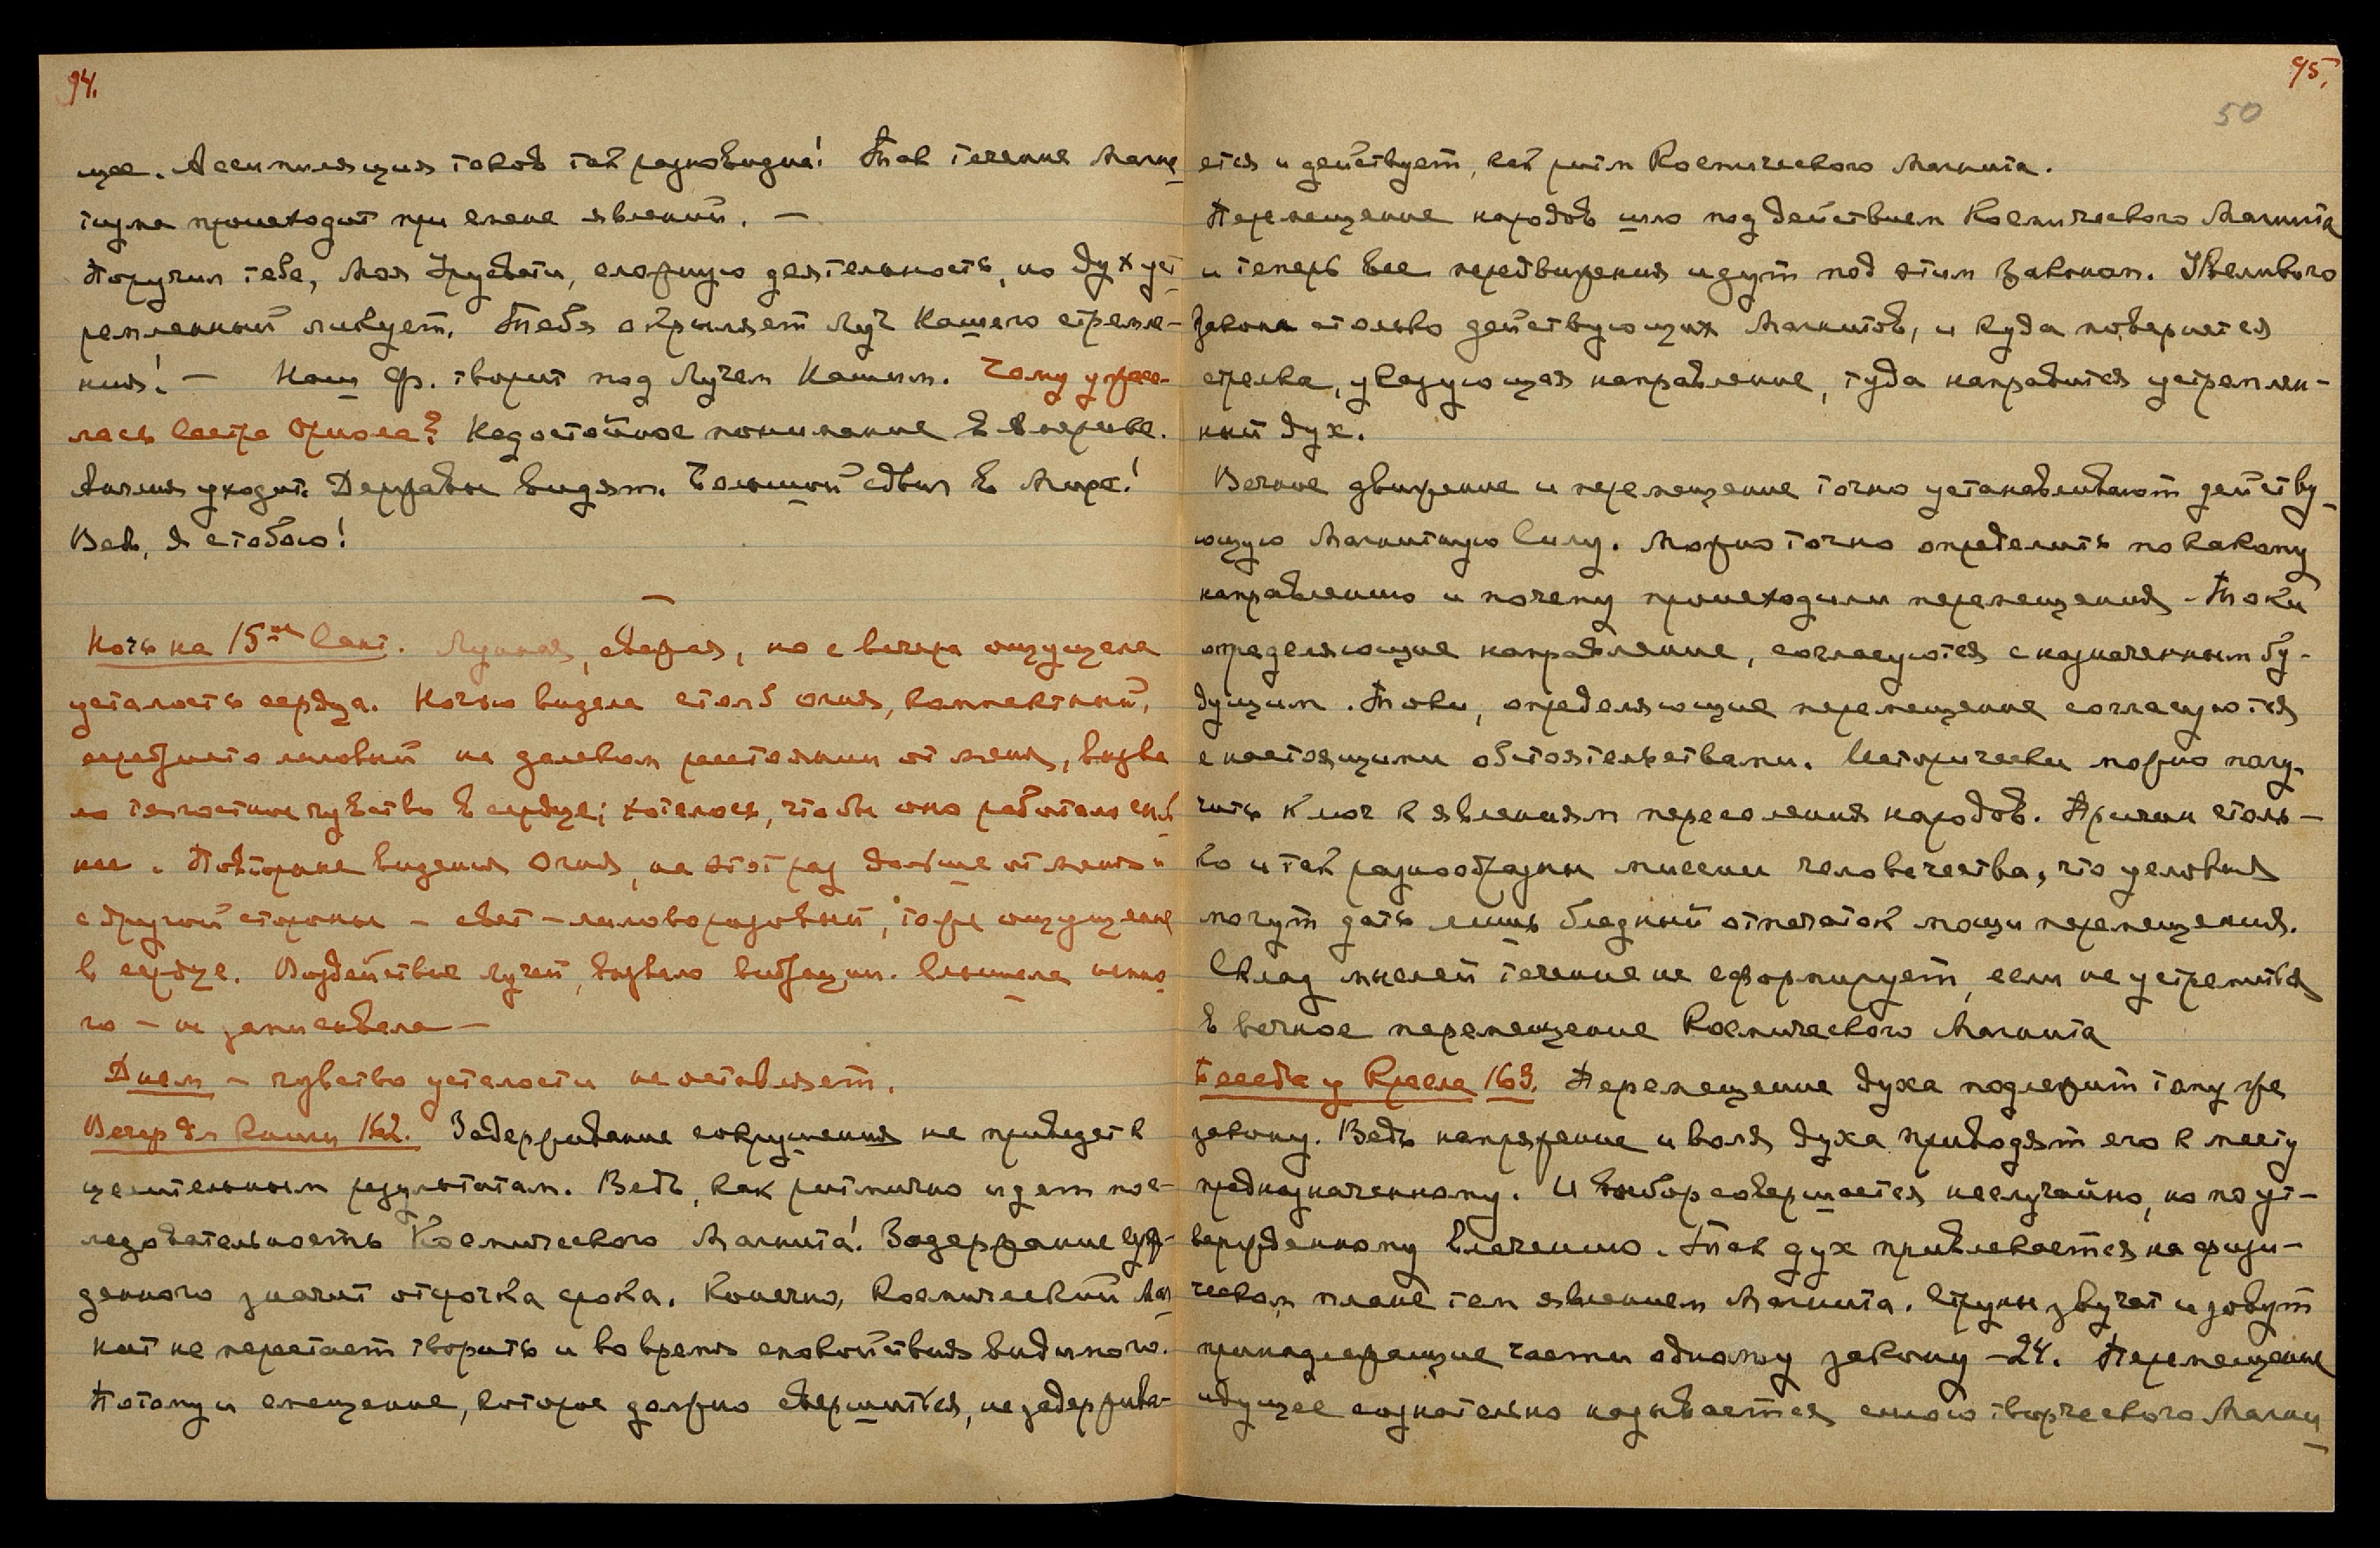 94.
щее. Ассимиляция токов так разновидна! Так течение Магне
тизма происходит при смене явлений. —
Поручил тебе, Моя Урусвати, сложную деятельность, но дух уст
ремленный ликует. Тебя окрыляет Луч Нашего стремле-
ния! — Наш Ф. творит под Лучем Нашим. Чему ужасну-
лась Сестра Ориола? Недостойное понимание в Америке.
Англия уходит. Державы видят. Большой сдвиг в Мире!
Ведь, Я с тобою!
—
Ночь на 15ое Сент. Лунная, свежая, но с вечера ощущала
усталость сердца. Ночью видела столб огня, компактный,
серебристо лиловый на далеком расстоянии от меня, вызва
ло тягостное чувство в сердце; хотелось, чтобы оно работало силь
нее. Повторные видения Огня, на этот раз дальше от меня и
с другой стороны — свет — лилово розовый, то же ощущение
в сердце. Воздействие лучей, вызвало вибрации. Слышала немно
го — не записывала —
Днем — чувство усталости не оставляет.
Вечер для Книги 162. Задерживание сокрушения не приведет к
целительным результатам. Ведь, как ритмично идет пос-
ледовательность Космического Магнита! Задержание суж-
денного значит отсрочка срока. Конечно, Космический Маг
нит не перестает творить и во время спокойствия видимого.
Потому и смещение, которое должно свершиться, не задержива-
95.
50
ется и действует, как ритм Космического Магнита.
Перемещение народов шло под действием Космического Магнита
и теперь все передвижения идут под этим Законом. У Великого
Закона столько действующих Магнитов, и куда повернется
стрелка, указующая направление, туда направится устремлен-
ный дух.
Вечное движение и перемещение точно устанавливают действу
ющую Магнитную Силу. Можно точно определить по какому
направлению и почему происходили перемещения. Токи
определяющие направление, согласуются с назначенным бу-
дущим. Токи, определяющие перемещение согласуются
с настоящими обстоятельствами. Исторически можно полу-
чить ключ к явлениям переселения народов. Причин столь-
ко и так разнообразны миссии человечества, что условия
могут дать лишь бледный отпечаток мощи перемещения.
Склад мыслей течение не сформирует, если не устремится
в вечное перемещение Космического Магнита
Беседа у Кресла 163. Перемещение духа подлежит тому же
закону. Ведь напряжение и воля духа приводят его к месту
предназначенному. И выбор совершается неслучайно, но по ут-
вержденному влечению. Так дух привлекается на физи-
ческом плане тем явлением Магнита. Струны звучат и зовут
принадлежащие части одному закону — 24. Перемещение
идущее сознательно называется силою творческого Магни